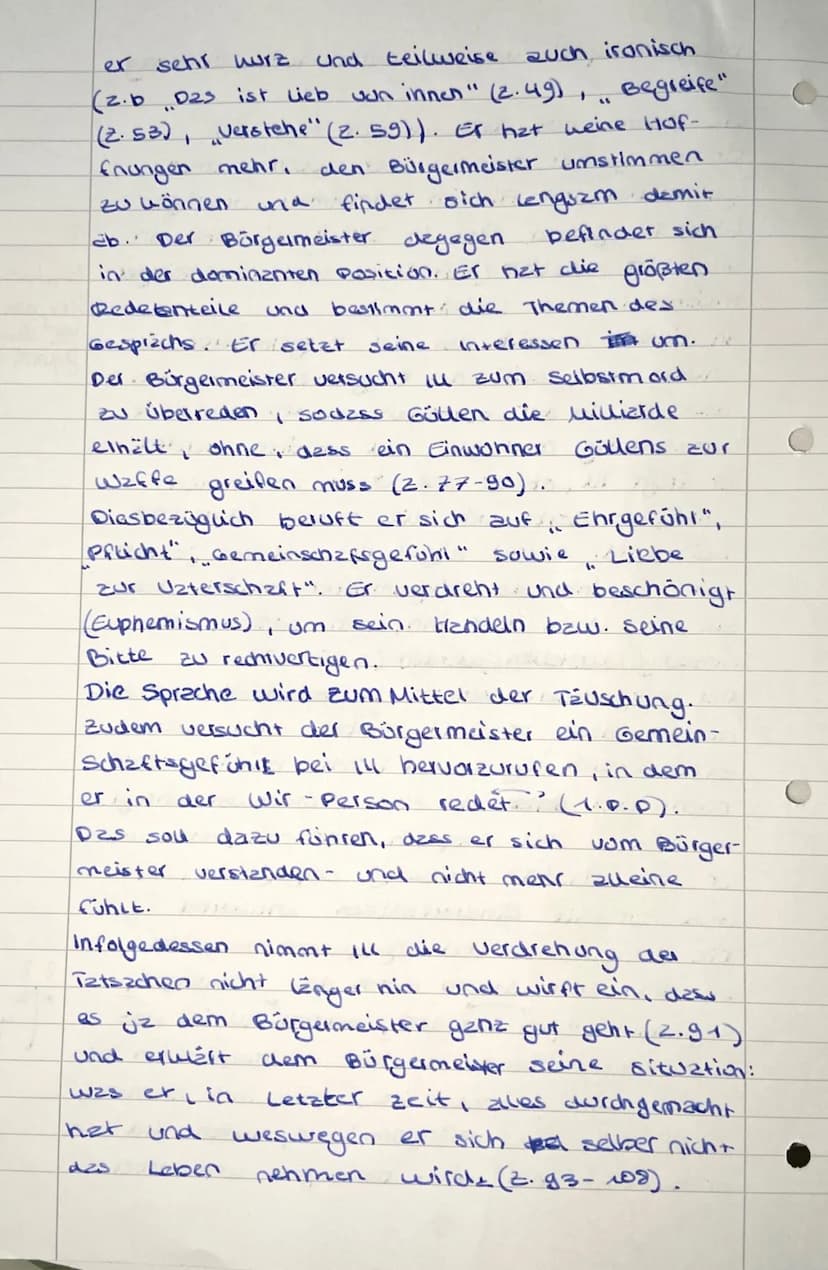 er sehr kurz und teilweise auch ironisch
(z.b „Das ist lieb von ihnen" (z.49), „Begreife"
(z.53), „Verstehe" (z.59)). Er hat keine Hof-
fnungen mehr, den Bürgermeister umstimmen
zu können und findet sich langsam damit
ab. Der Bürgermeister dagegen befindet sich
in der dominanten Position. Er hat die größten
Redeanteile und bestimmt die Themen des
Gesprächs. Er setzt seine Interessen um.
Der Bürgermeister versucht Ill zum Selbstmord
zu überreden, sodass Güllen die Milliarde
erhält, ohne, dass ein Einwohner Güllens zur
Waffe greifen muss (z.77-90).
Diesbezüglich beruft er sich auf „Ehrgefühl",
„Pflicht", „Gemeinschafsgefühl" sowie „Liebe
zur Vaterschaft". Er verdreht und beschönigt
(Euphemismus), um sein Handeln bzw. seine
Bitte zu rechtvertigen.
Die Sprache wird zum Mittel der Täuschung.
Zudem versucht der Bürgermeister ein Gemein-
schaftsgefühl bei Ill hervorzurufen, in dem
er in der Wir-Person redet (1.P.P).
Das soll dazu führen, dass er sich vom Bürger-
meister verstanden- und nicht mehr alleine
fühlt.
Infolgedessen nimmt Ill die Verdrehung der
Tatsachen nicht länger hin und wirft ein, dass
es ja dem Bürgermeister ganz gut geht (z.91)
und erklärt dem Bürgermeister seine Situation:
was er, in letzter Zeit, alles durchgemacht
hat und weswegen er sich selber nicht
das Leben nehmen wird (z.93-108).